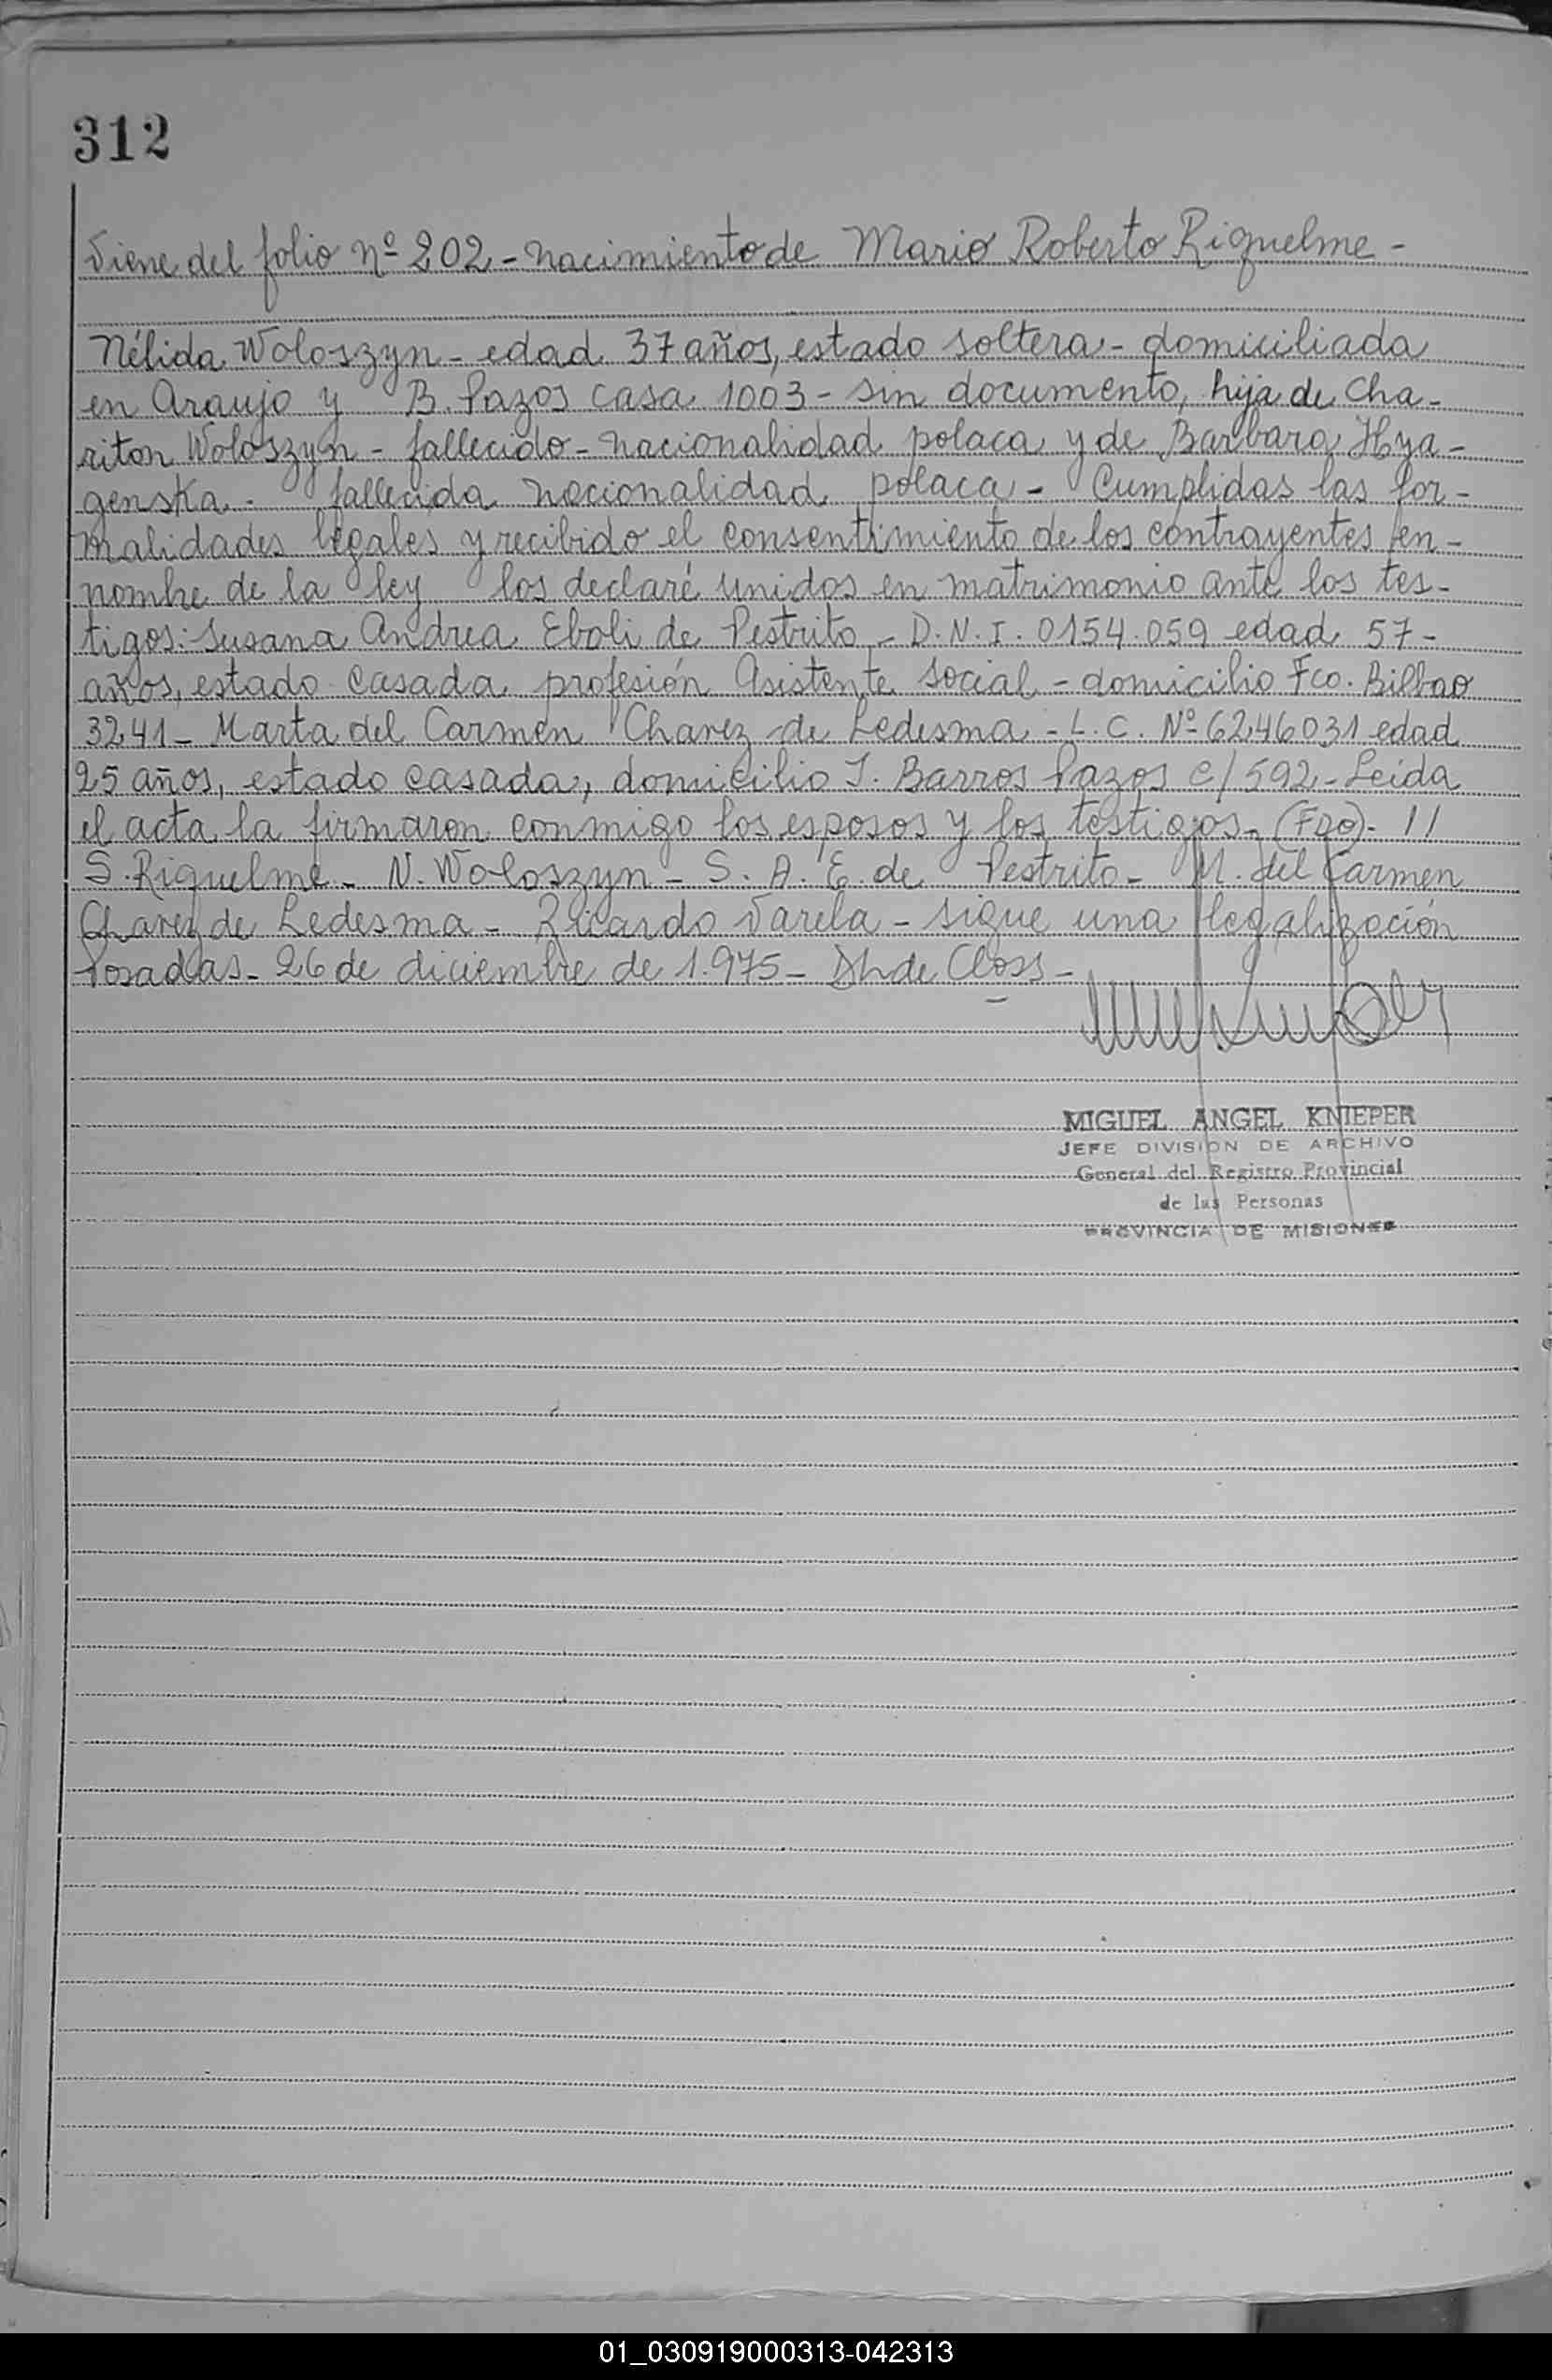 312
Viene del folio nº 202 - nacimiento de Mario Roberto Riquelme -
Nélida Woloszyn - edad 37 años, estado soltera - domiciliada
en Araujo y B. Pazos casa 1003 - sin documento, hija de Cha-
riton Woloszyn - fallecido - nacionalidad polaca y de Barbara Hya-
genska - fallecida nacionalidad polaca - Cumplidas las for-
malidades legales y recibido el consentimiento de los contrayentes en-
nombre de la ley los declaré unidos en matrimonio ante los tes-
tigos: Susana Andrea Eboli de Pestrito - D.N.I. 0154.059 edad 57-
años, estado casada profesión Asistente Social - domicilio Fco. Bilbao
3241 - Marta del Carmen Chavez de Ledesma - L.C. Nº 6246031 edad
25 años, estado casada, domicilio J. Barros Pazos c/ 592 - Leida
el acta la firmaron conmigo los esposos y los testigos - (Fdo) - //
S. Riquelme - N. Woloszyn - S. A. E. de Pestrito - M. del Carmen
Chavez de Ledesma - Ricardo Varela - sigue una legalización
Posadas - 26 de diciembre de 1.975 - de Closs -
MIGUEL ANGEL KNIEPER
JEFE DIVISION DE ARCHIVO
General del Registro Provincial
de las Personas
PROVINCIA DE MISIONES
01_030919000313-042313